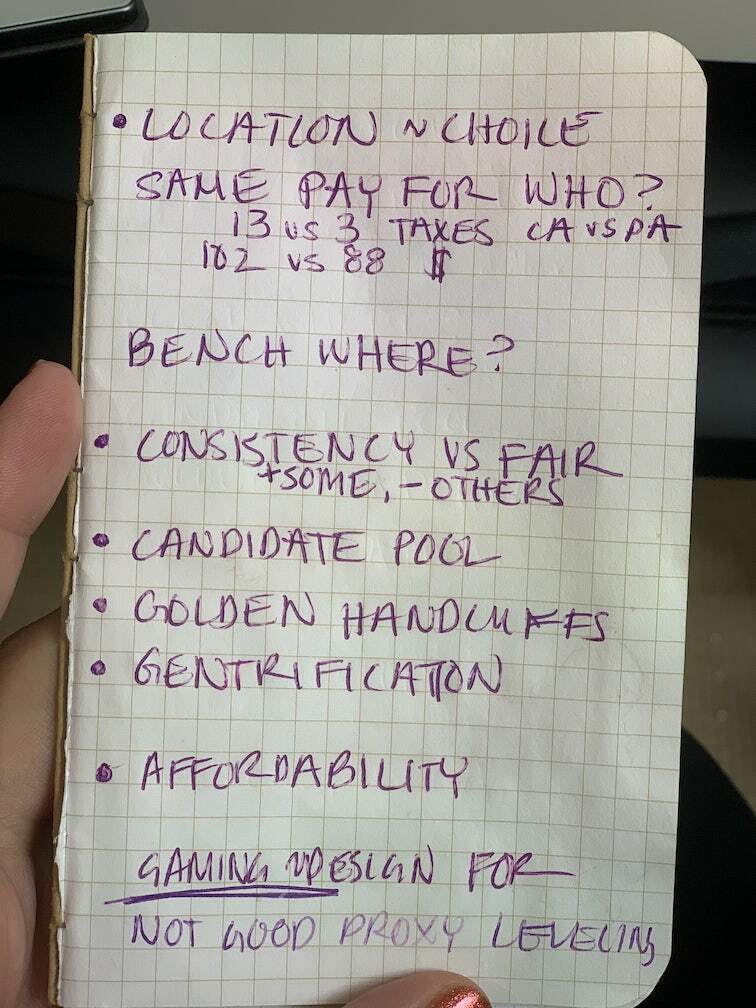 • LOCATION ~ CHOICE
SAME PAY FOR WHO?
13 vs 3 TAXES CA vs PA
102 vs 88 $
BENCH WHERE?
• CONSISTENCY VS FAIR
+SOME, - OTHERS
• CANDIDATE POOL
• GOLDEN HANDCUFFS
• GENTRIFICATION
• AFFORDABILITY
GAMING ~ DESIGN FOR
NOT GOOD PROXY LEVELING